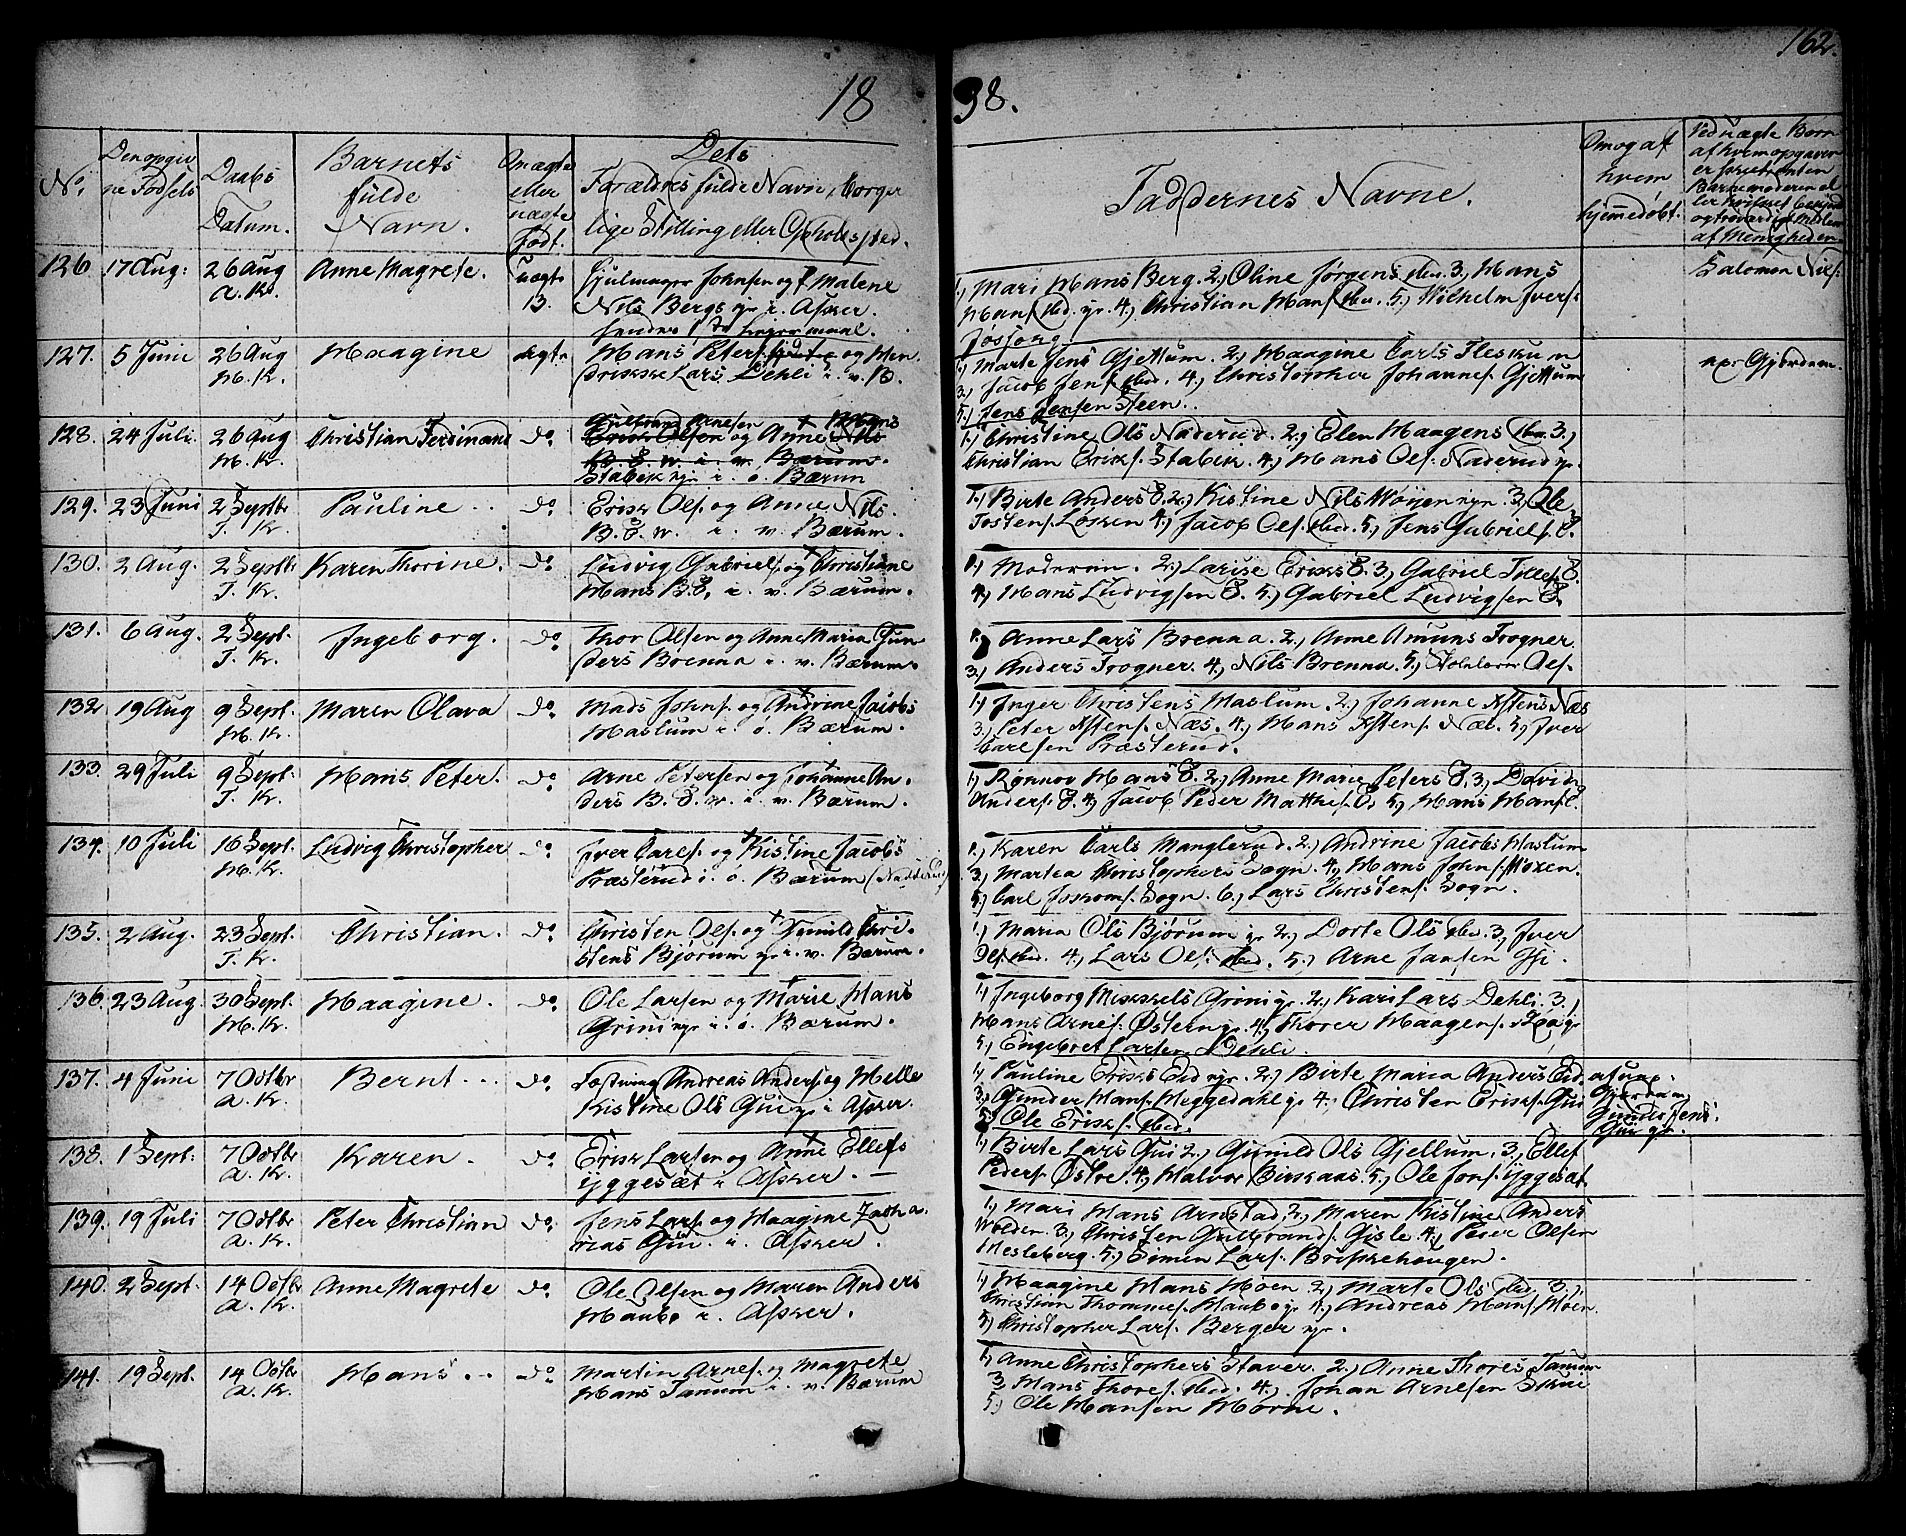 162.
18 38.
No.
Den opgivne Fødsels
Daabs Datum.
Barnets fulde Navn.
Om ægte eller uægte født.
Dets Forældres fulde Navne, borgerlige Stilling eller Opholdssted.
Faddernes Navne.
Om og af hvem hjemmedøbt.
Ved uægte Børn
126 17 Aug: 26 Aug A. K. Anne Magrete. uægte 13.
Johnsen og Malene
Nils Bergs gr i. Asker.
1, Mari Hans Berg. 2, Oline Jørgens ibd. 3, Hans
Hans ibd. gr. 4, Christian Hans ibd. 5, Wilhelm Ivers.
Salomon Nils.
127. 5 Juni 26 Aug H. K. Haagine ægte
Hans Peters og Hen
drikke Lars Dehli i. v. B.
1, Marte Jens Gjettum. 2, Haagine Carls Fleskum
3, Jacob Jens. ibd. 4, Christopher Johannes. Gjettum
5, Jens Jensen Steen.
128. 24 Juli. 26 Aug H. K. Christian Ferdinand do
Gulbrand Arnesen Hans
Erik Olsen og Anne Nils
B. E. w. i. v. Bærum.
Stabek gr i. ø. Bærum
1, Christine Ols Naderud. 2, Elen Haagens ibd. 3,
Christian Eriks. Stabek. 4, Hans Ols. Naderud gr.
129. 23 Juni 2 Septbr T. K. Pauline do
Erik Ols. og Anne Nils.
B. E. w. i. v. Bærum.
1, Birte Anders E. 2, Kistine Nils Høyen gr. 3, Ole
Tostens. Løken 4, Jacob Ols. ibd. 5, Jens Gabriels. E.
130. 2 Aug. 2 Septb. T. K. Karen Thorine. do
Ludvig Gabriels. og Christiane
Hans B. E. i. v. Bærum.
1, Moderen. 2, Larise Eriks E. 3, Gabriel Tollefs E.
4, Hans Ludvigsen E. 5, Gabriel Ludvigsen E.
131. 6 Aug. 2 Sept. T. K. Ingeborg. do
Thor Olsen og Anne Maria Gun
ders Brenna i. v. Bærum.
1. Anne Lars Brenna. 2, Anne Amuns Trogner
3, Anders Trogner. 4, Nils Brenna. 5, Ols.
132 19 Aug 9 Sept. H. K. Maren Olava do
Mads Johns. og Andrine Jacobs
Haslum i. ø. Bærum.
1, Inger Christens Haslum. 2, Johanne Astens Næs
3, Peter Astens. Næs. 4, Hans Astens. Næs. 5, Iver
Carlsen Præsterud.
133. 29 Juli 9 Sept. T. K. Hans Peter. do
Arne Petersen og Johanne An
ders B. E. w. i. v. Bærum.
1, Rønnov Hans E. 2, Anne Marie Peters E. 3, David
Anders. E. 4, Jacob Peder 5, Hans Hans E.
134. 10 Juli 16 Sept. H. K. Ludvig Christopher do
Iver Carls. og Kistine Jacobs
Præsterud i. ø. Bærum (Nadderud)
1, Karen Carls Manglerud. 2, Andrine Jacobs Haslum
3, Martea Christophers Sogn. 4, Hans Johns.
5, Carl Sogn. 6, Lars Christens. Sogn.
135. 2 Aug. 23 Sept. T. K. Christian. do
Christen Ols. og Gunild Chri
stens Bjørum gr i. v. Bærum.
1, Maria Ols Bjørum gr 2, Dorte Ols ibd. 3, Iver
Ols. ibd. 4, Lars Ols. ibd. 5, Arne Jansen
136. 23 Aug. 30 Sept. H. K. Haagine. do
Ole Larsen og Marie Hans
Grini gr i. ø. Bærum.
1, Ingeborg Mikkels Grini gr. 2, Kari Lars Dehli. 3,
Hans Arnes. Østern gr. 4, Thorer Haagens.
5, Engebret Larsen Dehli.
137. 4 Juni 7 Octbr A. K. Bernt do
Andreas Anders. og Helle
Kistine Ols Gui gr i Asker.
1, Pauline Eriks Eid gr. 2, Birte Maria Anders Eid.
3, Gunder Hans. Heggedahl gr 4, Christen Eriks. Gui
5, Ole Eriks. ibd.
Gui gr.
138. 1 Sept. 7 Octbr A. K. Karen. do
Erik Larsen og Anne Ellefs
Yggesæt i Asker.
1, Birte Lars Gui 2, Gunild Ols Gjellum. 3, Ellef
Peders. Østre. 4, Halvor Birkaas 5, Ole Jons. Yggesæt
139. 19 Juli 7 Octbr A. K. Peter Christian do
Jens Lars. og Haagine Zacha
rias Gui. i. Asker.
1, Mari Hans Arnstad 2, Maren Kistine Anders
Wolden. 3, Christen Gulbrands. Gisle. 4, Peter Olsen
Hesleberg. 5, Simen Lars. Briskehougen.
140. 2 Sept. 14 Octbr A. K. Anne Magrete do
Ole Olsen og Maren Anders
Haubo i. Asker.
1, Haagine Hans Moen. 2, Marte Ols ibd. 3,
Christian Thommes. Haubo gr. 4, Andreas Hans. Moen.
5, Christopher Lars. Berger gr.
141. 19 Sept. 14 Octbr A. K. Hans do
Martin Arnes. og Magrete
Hans Tanum i. v. Bærum
1, Anne Christophers Staver. 2, Anne Thores Tanum
3, Hans Thores. ibd. 4, Johan Arnesen Skui
5, Ole Hansen Horne.